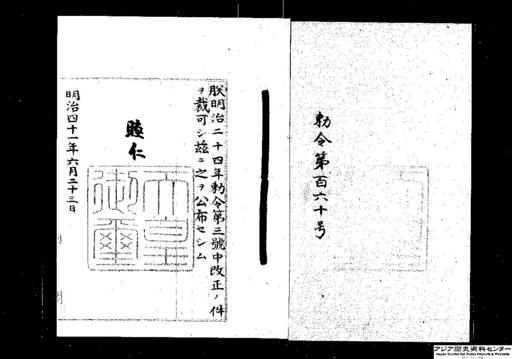 勅令第百六十号
朕明治二十四年勅令第三號中改正ノ件
ヲ裁可シ茲ニ之ヲ公布セシム
睦仁
天皇
御璽
明治四十一年六月二十三日
アジア歴史資料センター
Japan Center for Asian Historical Records